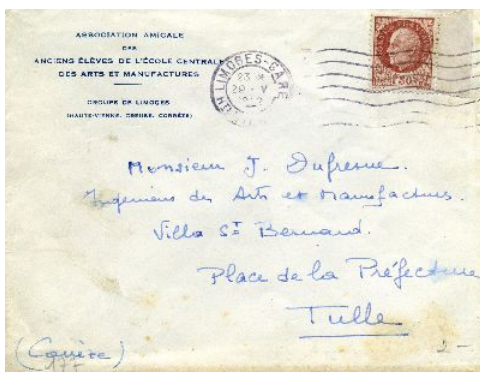 ASSOCIATION AMICALE
DES
ANCIENS ÉLÈVES DE L'ÉCOLE CENTRALE
DES ARTS ET MANUFACTURES
GROUPE DE LIMOGES
(HAUTE-VIENNE, CREUSE, CORRÈZE)
LIMOGES-GARE
23 H
29 - V
Monsieur J. Dufresne.
Ingénieur des Arts et Manufactures.
Villa St Bernard.
Place de la Préfecture
Tulle
(Corrèze)